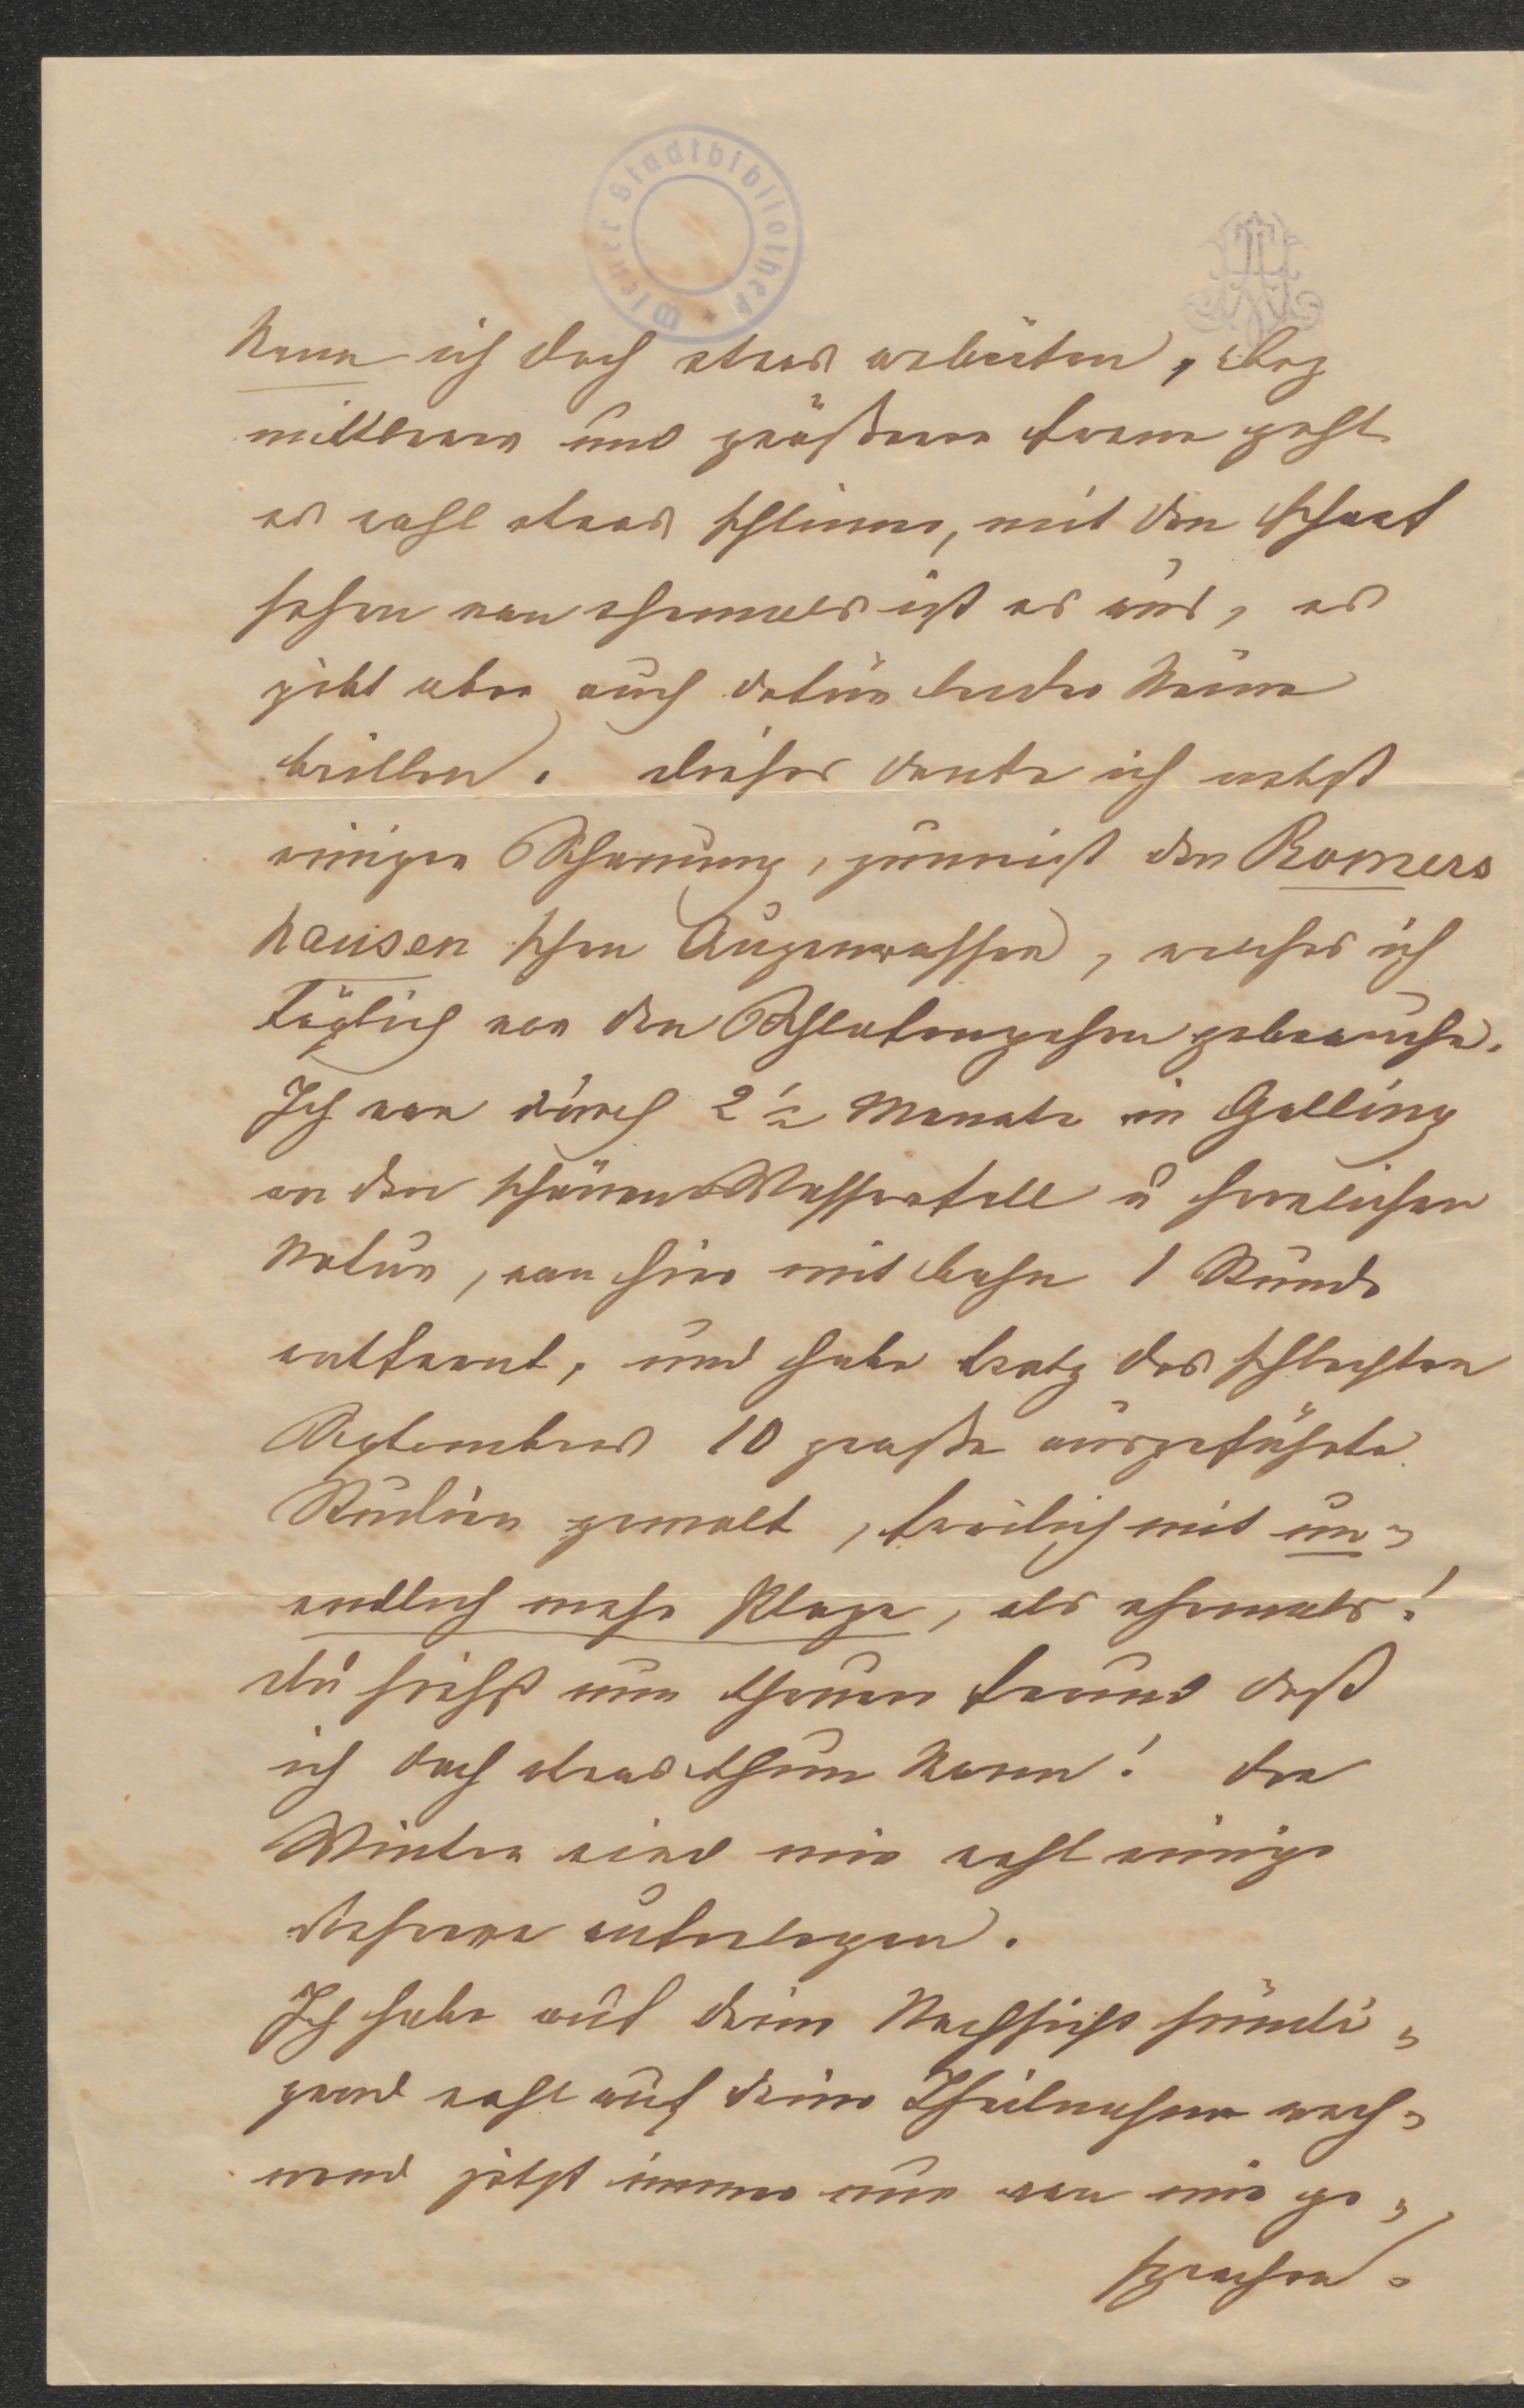 Wiener Stadtbibliothek
kann ich doch etwas arbeiten, bey
mittleren und größeren Fernen geht
es wohl etwas schlimm, mit dem scharf
sehen von ehemals ist es aus, es
gibt aber auch dafür leider keine
Brillen. Dieses danke ich nebst
einiger Schonung, zumeist dem Romers
hausen schen Augenwasser, welches ich
täglich vor dem Schlafengehen gebrauche.
Ich war durch 2 ½ Monate in Golling
an dem schönen Wasserfall u herrlichen
Natur, von hier mit Bahn 1 Stunde
entfernt, und habe trotz des schlechten
Septembers 10 große ausgeführte
Studien gemalt, freilich mit un-
endlich mehr Plage, als ehemals!
Du siehst nun theurer Freund daß
ich doch etwas thun kann! Der
Winter wird mir wohl einige
auferlegen.
Ich habe auf deine Nachsicht sündi-
gend wohl auf deine Theilnahme rech-
nend jetzt immer nur von mir ge-
sprochen.